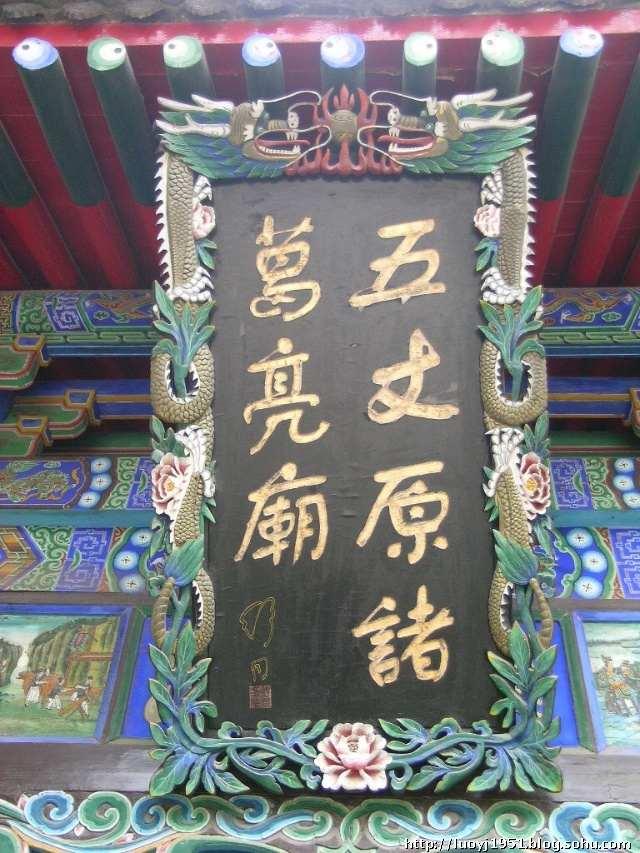 五丈原諸
葛亮廟
http://luoyj1951.blog.sohu.com